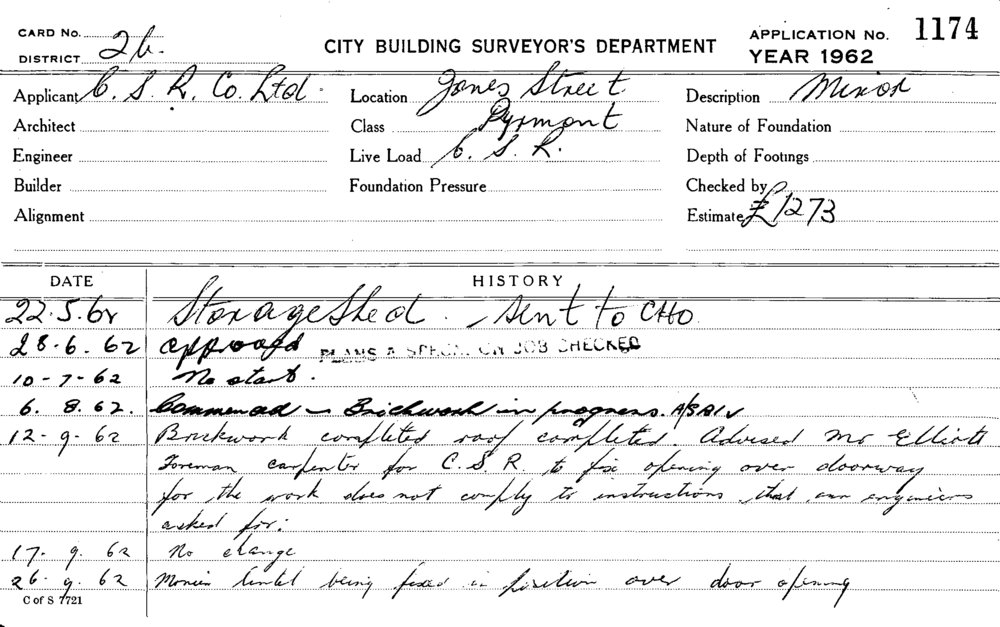 CARD No. 26.
DISTRICT
CITY BUILDING SURVEYOR'S DEPARTMENT
APPLICATION No. 1174
YEAR 1962
Applicant C. S. R. Co. Ltd. Location Jones Street. Description Minor
Architect Class Pyrmont Nature of Foundation
Engineer Live Load C. S. R. Depth of Footings
Builder Foundation Pressure Checked by
Alignment Estimate £1273
DATE HISTORY
22.5.62 Storage Shed. sent to CHO.
28.6.62 approved PLANS & SPECN. ON JOB CHECKED
10-7-62 No start.
6.8.62. Commenced – Brickwork in progress.
12-9-62 Brickwork completed roof completed. Advised Mr Elliott
Foreman carpenter for C.S.R. to fix opening over doorway
for the work does not comply to instructions that our engineers
asked for:
17.9.62 No change
26.9.62 Monier lintel being fixed in position over door opening
C of S 7721